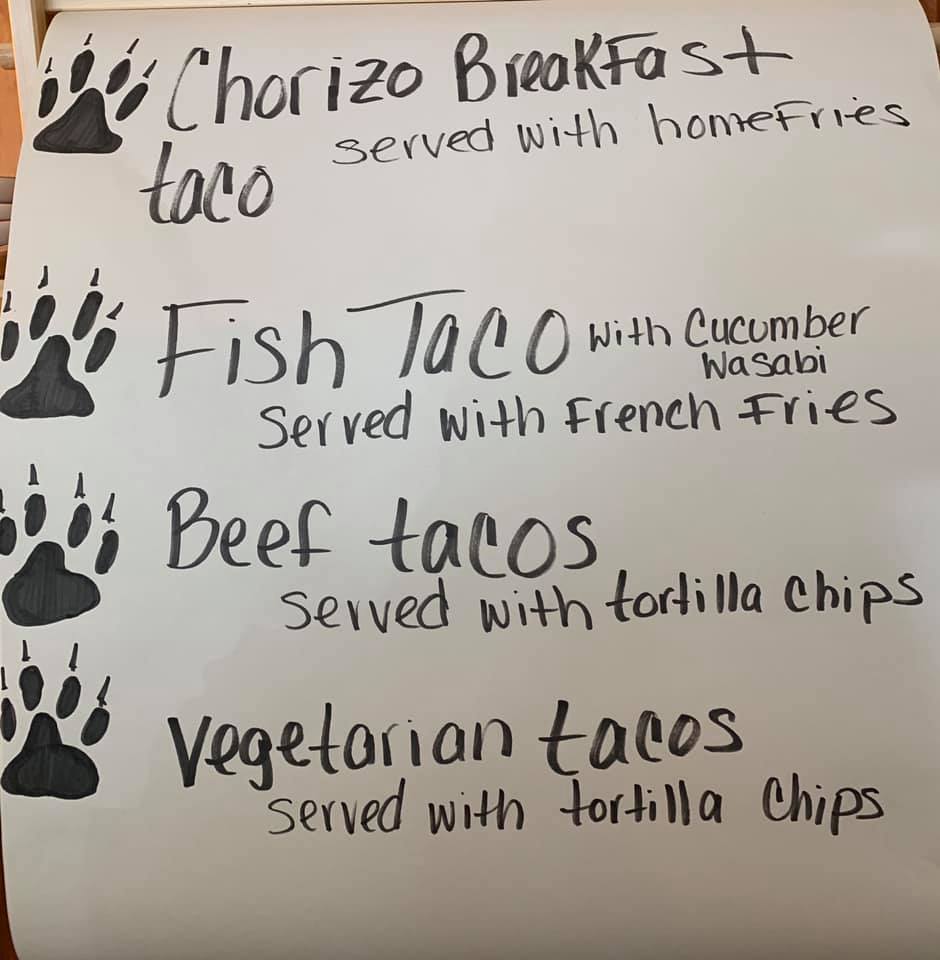 Chorizo BreakFast
served with homeFries
taco
Fish Taco with Cucumber
Wasabi
Served with French Fries
Beef tacos
Served with tortilla chips
Vegetarian tacos
Served with tortilla Chips